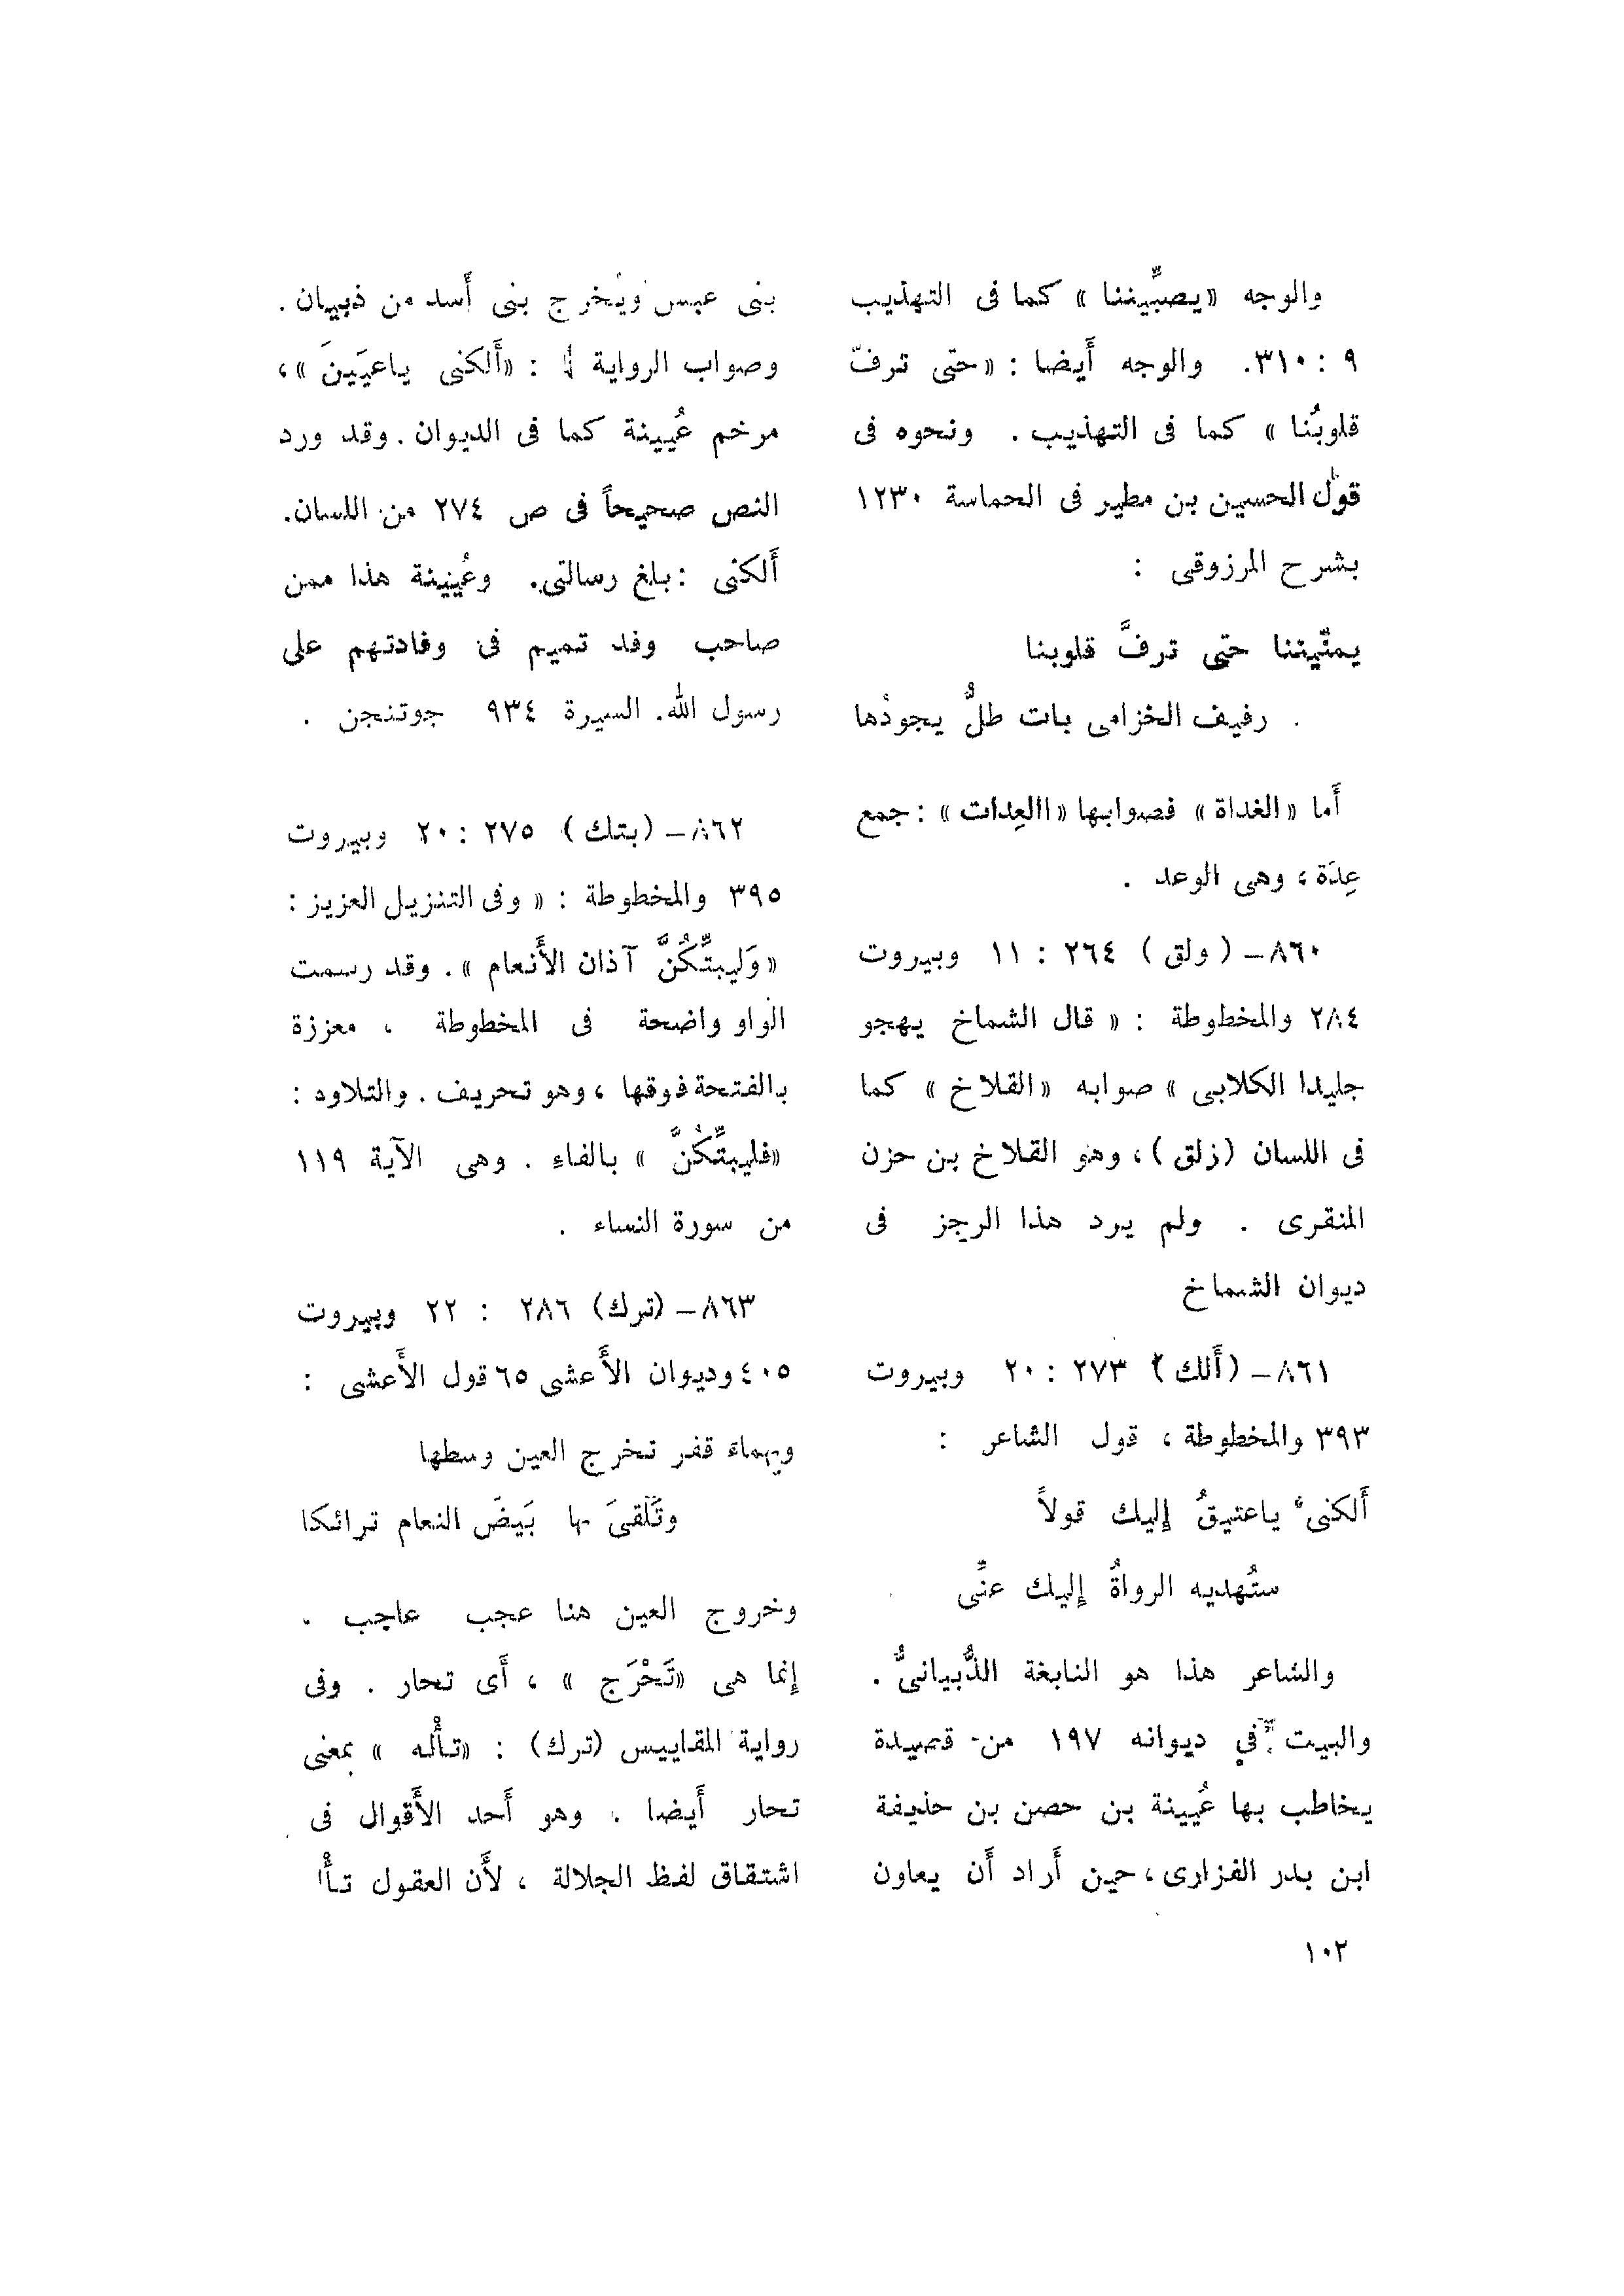 والوجه «يصبِّيننا» كما فى التهذيب
٩ : ٣١٠. والوجه أَيضا : «حتى ترفّ
قلوبُنا» كما فى التهذيب . ونحوه فى
قول الحسين بن مطير فى الحماسة ١٢٣٠
بشرح المرزوقى :
يمنّيتنا حتى ترفَّ قلوبنا
رفيف الخزامى بات طلٌّ يجودُها
أَما «الغداة» فصوابها «االعِدات» : جمع
عِدَة ، وهى الوعد .
٨٦٠ـ ( ولق ) ٢٦٤ : ١١ وبيروت
٢٨٤ والمخطوطة : «قال الشماخ يهجو
جليدا الكلابى» صوابه «القلاخ» كما
فى اللسان (زلق) ، وهو القلاخ بن حزن
المنقرى . ولم يرد هذا الرجز فى
ديوان الشماخ
٨٦١ـ (أَلك) ٢٧٣ : ٢٠ وبيروت
٣٩٣ والمخطوطة ، قول الشاعر :
أَلكنى ياعتيقُ إِليك قولاً
ستُهديه الرواةُ إِليك عنِّى
والشاعر هذا هو النابغة الذُّبيانىُّ .
والبيت في ديوانه ١٩٧ من قصيدة
يخاطب بها عُيينة بن حصن بن حذيفة
ابن بدر الفزارى ، حين أَراد أَن يعاون
بنى عبس ويُخرج بنى أَسد من ذبيان .
وصواب الرواية : «أَلكنى ياعيَينَ» ،
مرخم عُيينة كما فى الديوان . وقد ورد
النص صحيحاً فى ص ٢٧٤ من اللسان.
أَلكنى : بلغ رسالتى. وعُيينة هذا ممن
صاحب وفد تميم فى وفادتهم على
رسول الله. السيرة ٩٣٤ جوتنجن .
٨٦٢ـ (بتك) ٢٧٥ : ٢٠ وبيروت
٣٩٥ والمخطوطة : «وفى التنزيل العزيز :
«وَليبتِّكُنَّ آذان الأَنعام» . وقد رسمت
الواو واضحة فى المخطوطة ، معززة
بالفتحة فوقها ، وهو تحريف . والتلاود :
«فليبتِّكُنَّ» بالفاءِ . وهى الآية ١١٩
من سورة النساء .
٨٦٣ـ (ترك) ٢٨٦ : ٢٢ وبيروت
٤٠٥ وديوان الأَعشى ٦٥ قول الأَعشى :
ويهماءَ قفر تخرج العين وسطها
وتَلقىَ بها بَيضَ النعام ترائكا
وخروج العين هنا عجب عاجب .
إِنما هى «تَحْرَج» ، أَى تحار . وفى
رواية المقاييس (ترك) : «تأْله» بمعنى
تحار أَيضا . وهو أَحد الأَقوال فى
اشتقاق لفظ الجلالة ، لأَن العقول
١٠٢